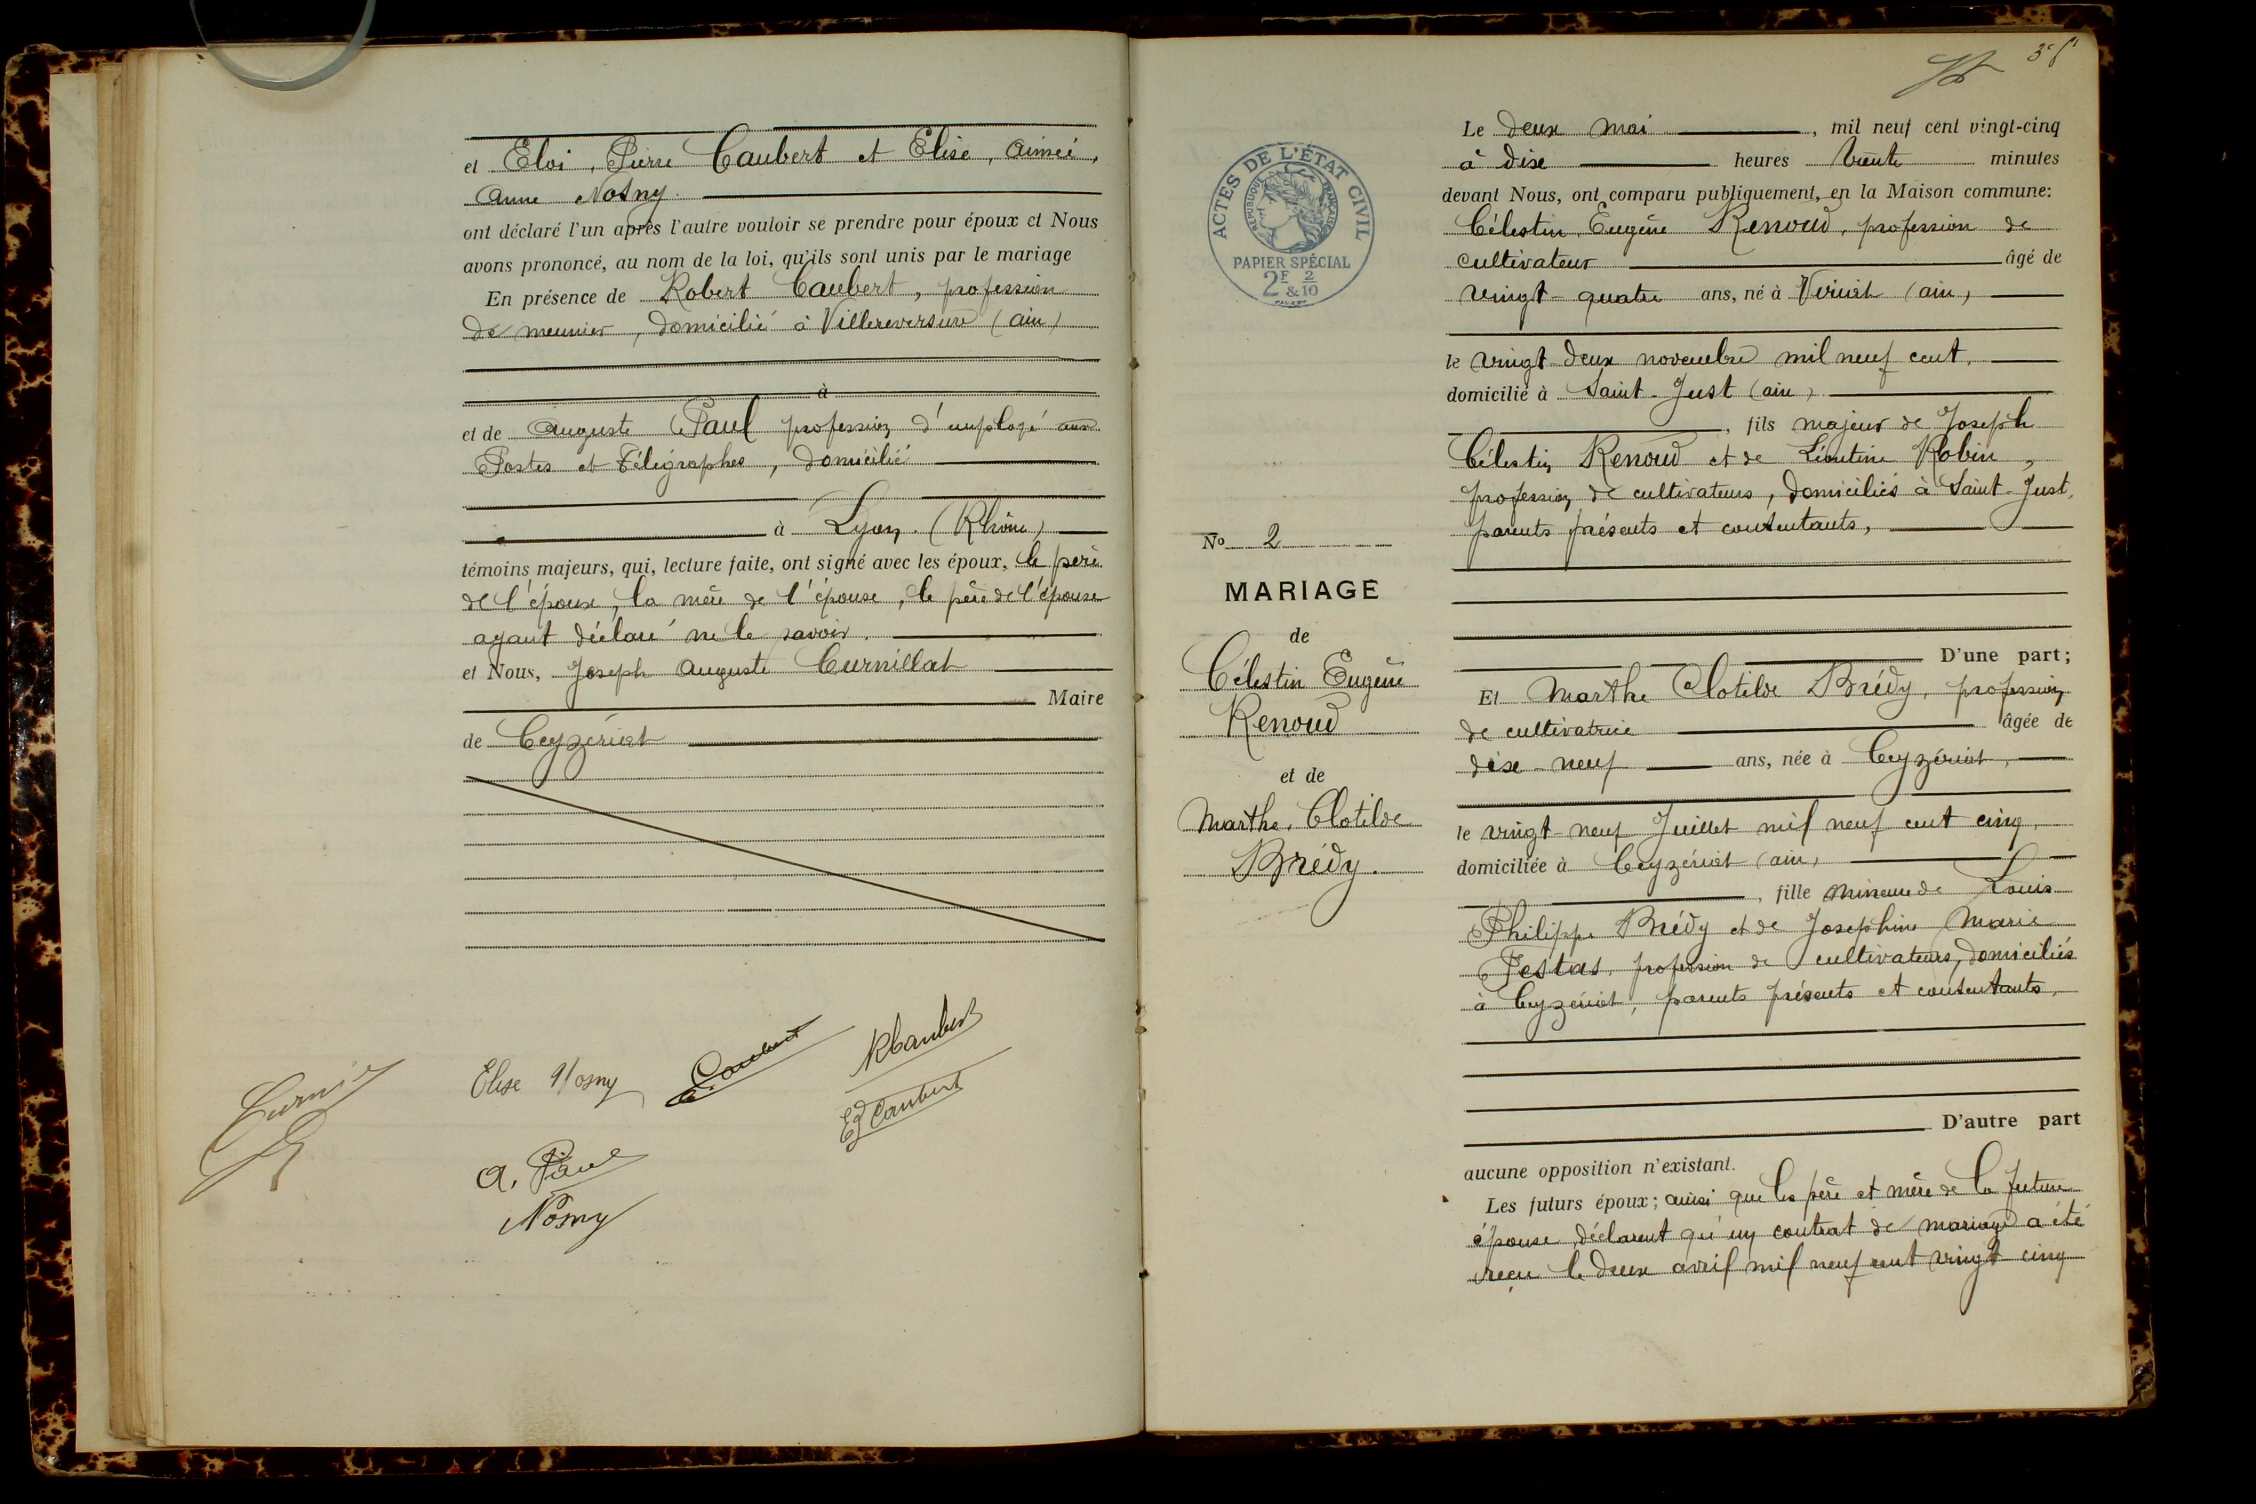 et Eloi, Pierre Caubert et Elise, Aimée,
Anne Nosny
ont déclaré l'un après l'autre vouloir se prendre pour époux et Nous
avons prononcé, au nom de la loi, qu'ils sont unis par le mariage
En présence de Robert Caubert, profession
de meunier, domicilié à Villereversure (ain)
à
et de Auguste Paul profession d'employé aux
Postes et Télégraphes, domicilié
à Lyon. (Rhône)
témoins majeurs, qui, lecture faite, ont signé avec les époux, le père
de l'époux, la mère de l'épouse, le père de l'épouse
ayant déclaré ne le savoir.
et Nous, Joseph Auguste Curnillat
Maire
de Ceyzériat
Elise Nosny
Caubert
RCaubert
Caubert
A. Paul
Nosny
Le deux mai, mil neuf cent vingt-cinq
à dix heures trente minutes
devant Nous, ont comparu publiquement, en la Maison commune:
Célestin, Eugène Renoud, profession de
cultivateur âgé de
vingt-quatre ans, né à Verjat (ain)
le vingt-deux novembre mil neuf cent,
domicilié à Saint-Just (ain)
, fils majeur de Joseph
Célestin Renoud et de Léontine Robin,
profession de cultivateurs, domiciliés à Saint-Just,
parents présents et consentants,
D'une part;
Et Marthe Clotilde Brédy, profession
de cultivatrice âgée de
dix-neuf ans, née à Ceyzériat,
le vingt-neuf Juillet mil neuf cent cinq,
domiciliée à Ceyzériat (ain)
, fille mineure de Louis
Philippe Brédy et de Josephine Marie
Festas, profession de cultivateurs, domiciliés
à Ceyzériat, parents présents et consentants,
D'autre part
aucune opposition n'existant.
Les futurs époux; ainsi que les père et mère de la future
épouse déclarent qu'un contrat de mariage a été
reçu le deux avril mil neuf cent vingt cinq
ACTES DE L'ÉTAT CIVIL
RÉPUBLIQUE FRANÇAISE
PAPIER SPÉCIAL
2F & 2/10
No 2
MARIAGE
de
Célestin Eugène
Renoud
et de
Marthe, Clotilde
Brédy.